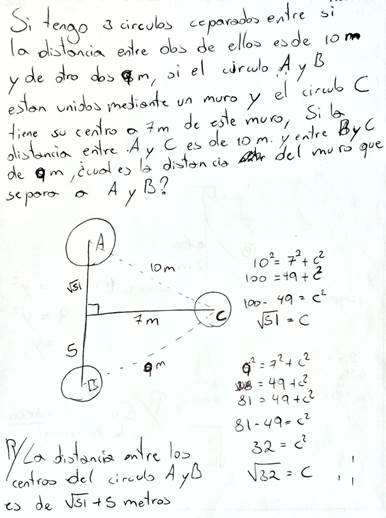 Si tengo 3 circulos ceparados entre si
la distancia entre dos de ellos es de 10 m
y de otro dos 9m, si el circulo A y B
estan unidos mediante un muro y el circulo C
tiene su centro a 7m de este muro, Si la
distancia entre A y C es de 10 m. y entre B y C
de 9m, ¿cual es la distancia del muro que
separa a A y B?
A
√51
10m
7m
C
5
9m
B
10² = 7² + c²
100 = 49 + c²
100 - 49 = c²
√51 = C
9² = 7² + c²
= 49 + c²
81 = 49 + c²
81 - 49 = c²
32 = c²
√32 = C
R/ La distancia entre los
centros del circulo A y B
es de √51 + 5 metros